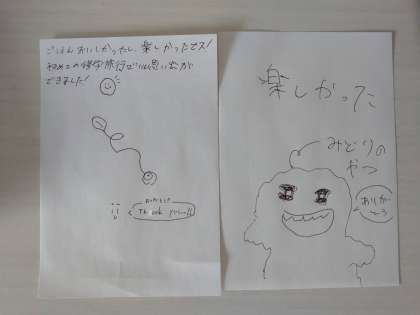 ごはんおいしかったし、楽しかったです!
初めての修学旅行でいい思い出が
できました!
Thank you!!
楽しかった
みどりの
やつ
ありが
とう